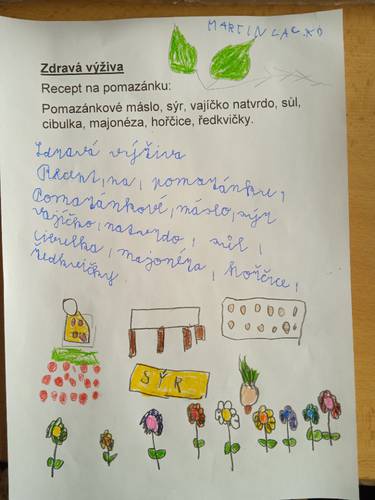 MARTIN LACKO
Zdravá výživa
Recept na pomazánku:
Pomazánkové máslo, sýr, vajíčko natvrdo, sůl,
cibulka, majonéza, hořčice, ředkvičky.
Zdravá výživa
Recept, na, pomazánku,
Pomazánkové, máslo, sýr
Vajíčko, natvrdo, sůl,
Cibulka, majonéza, hořčice,
Ředkvičky
SÝR